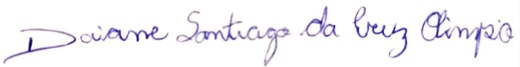 Daiane Santiago da Cruz Olimpio